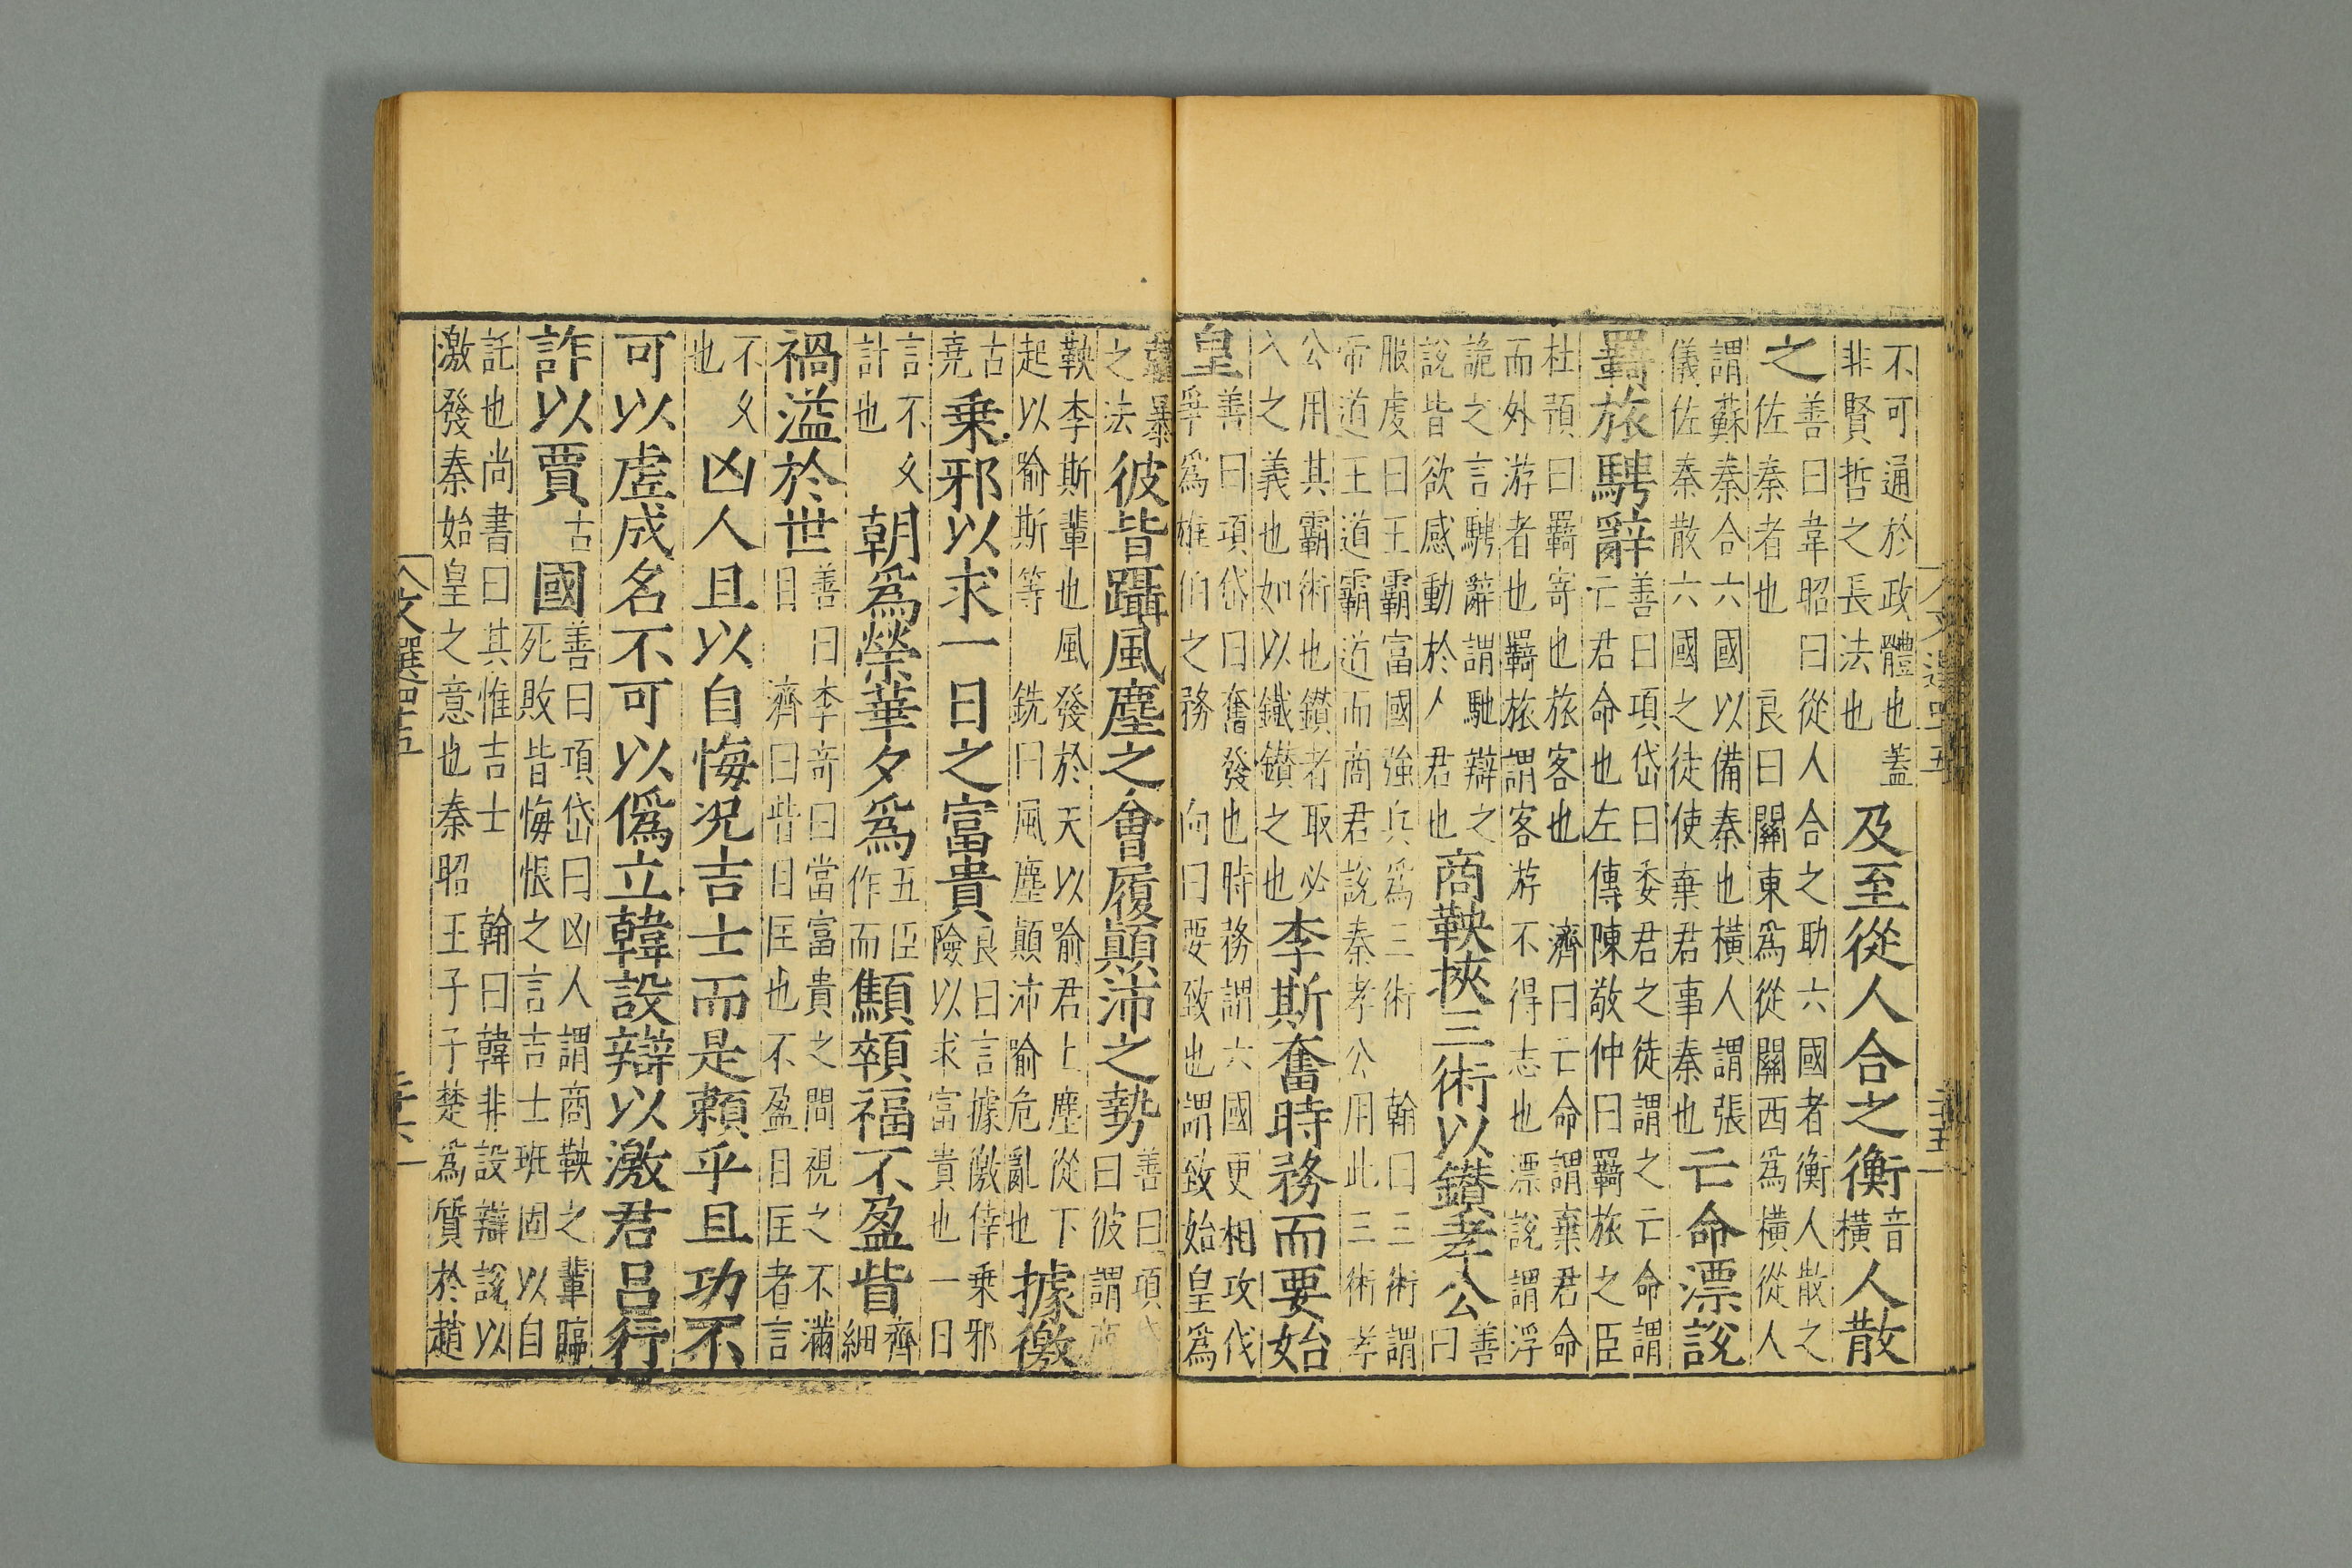 文選四十五
三十五
不可通於政體也蓋
非賢哲之長法也
及至從人合之衡
音
橫
人散
之
善曰韋昭曰從人合之助六國者衡人散之
佐秦者也 良曰關東為從關西為橫從人
謂蘇秦合六國以備秦也橫人謂張
儀佐秦散六國之徒使棄君事秦也
亡命漂說
羇旅騁辭
善曰項岱曰委君之徒謂之亡命謂
亡君命也左傳陳敬仲曰羇旅之臣
杜預曰羇寄也旅客也 濟曰亡命謂棄君命
而外游者也羇旅謂客游不得志也漂說謂浮
詭之言騁辭謂馳辯之
說皆欲感動於人君也
商鞅挾三術以鑚孝公
善
曰
服虔曰王霸富國強兵爲三術 翰曰三術謂
帝道王道霸道而商君說秦孝公用此三術孝
公用其霸術也鑚者取必
入之義也如以鐵鑚之也
李斯奮時務而要始
皇
善曰項岱曰奮發也時務謂六國更相攻伐
爭爲雄伯之務 向曰要致也謂致始皇爲
暴
之法
彼皆躡風塵之會履顛沛之勢
善曰項岱
曰彼謂商
鞅李斯輩也風發於天以喻君上塵從下
起以喻斯等 銑曰風塵顛沛喻危亂也
據徼
古
堯
乗邪以求一日之富貴
良曰言據徼倖乗邪
險以求富貴也一日
言不夂
計也
朝爲榮華夕爲
五臣
作而
顦顇福不盈眥
濟
細
禍溢於世
善曰李奇曰當富貴之間視之不滿
目 濟曰眥目匡也不盈目匡者言
不夂
也
凶人且以自悔況吉士而是賴乎且功不
可以虛成名不可以僞立韓設辯以激君呂行
詐以賈
古
國
善曰項岱曰凶人謂商鞅之輩臨
死敗皆悔悵之言吉士班固以自
託也尚書曰其惟吉士 翰曰韓非設辯說以
激發秦始皇之意也秦昭王子子楚爲質於趙
文選四十五
三十六